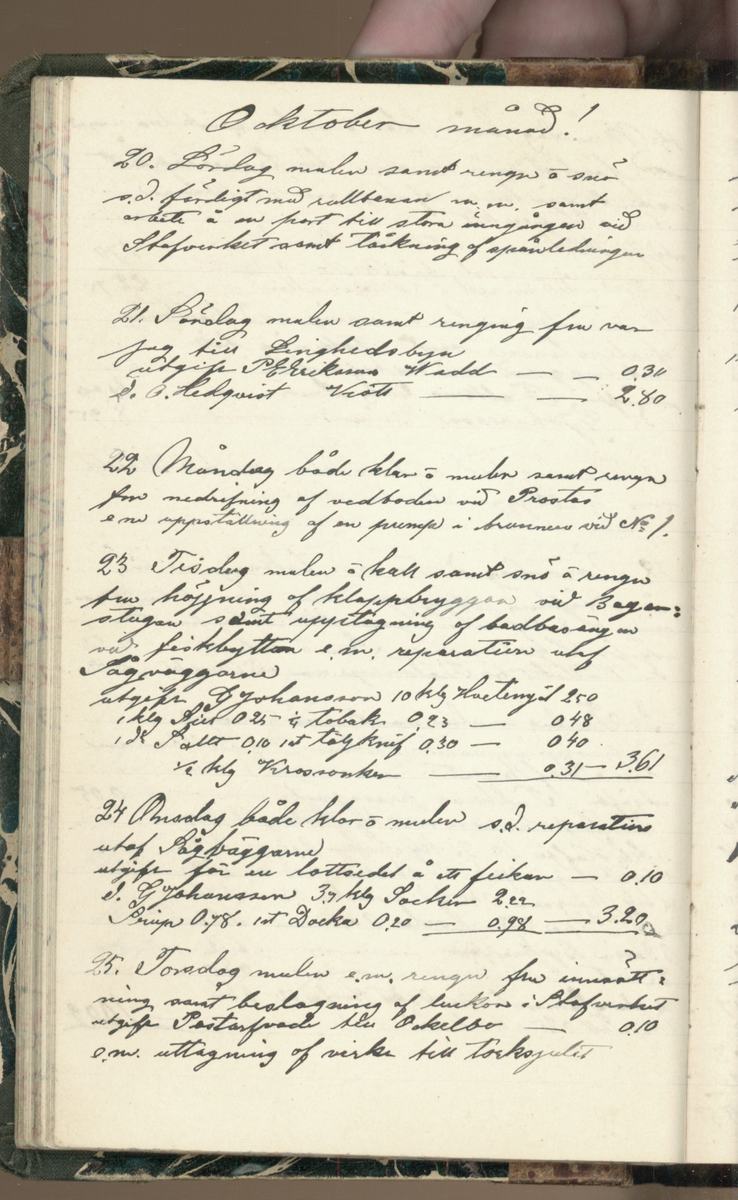 Oktober månad!
20. Lördag mulen samt rengn å snö
s.d. färdigt med rullbanan m.m. samt
arbete å en port till stora inngången vid
Stafverket samt täckning af spånledningen
21. Söndag mulen samt rengnig fm var
jag till Linghedsbyn
utgift P E Eriksson Wadd — — 0.30
d. O. Hedqvist Kött — — 2.80
22 Måndag både klar å mulen samt rengn
fm nedrifning af vedboden vid Prostas
e m uppställning af en pump i brunnen vid No 1.
23 Tisdag mulen å kall samt snö å rengn
fm höjning af klappbryggan vid Bagar=
stugan samt upptagning af badbasängen
vid fiskhyttan e.m. reparation utaf
Sågväggarne
utgift G Johansson 10 klg Hvetemjöl 2.50
1 klg 0.25 ½ tobak 0.23 — 0 48
1 d. Sallt 0.10 1 st tälgknif 0.30 — 0 40
½ klg — 0.31 — 3.61
24 Onsdag både klar å mulen s.d. reparation
utaf Sågväggarne
utgift för en lottsedel å ett — 0.10
d. G Johansson 3.7 klg Socker 2.22
Sirup 0.78. 1 st Docka 0.20 — 0.98 — 3.20
25. Torsdag mulen e.m. rengn fm innsätt=
ning samt beslagning af luckor i Stafverket
utgift till Ockelbo — 0.10
e.m. uttagning af virke till